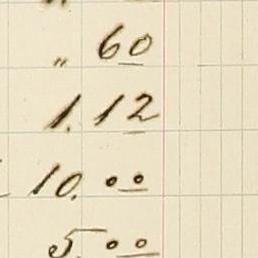 " 60
1.12
10.00
5.00